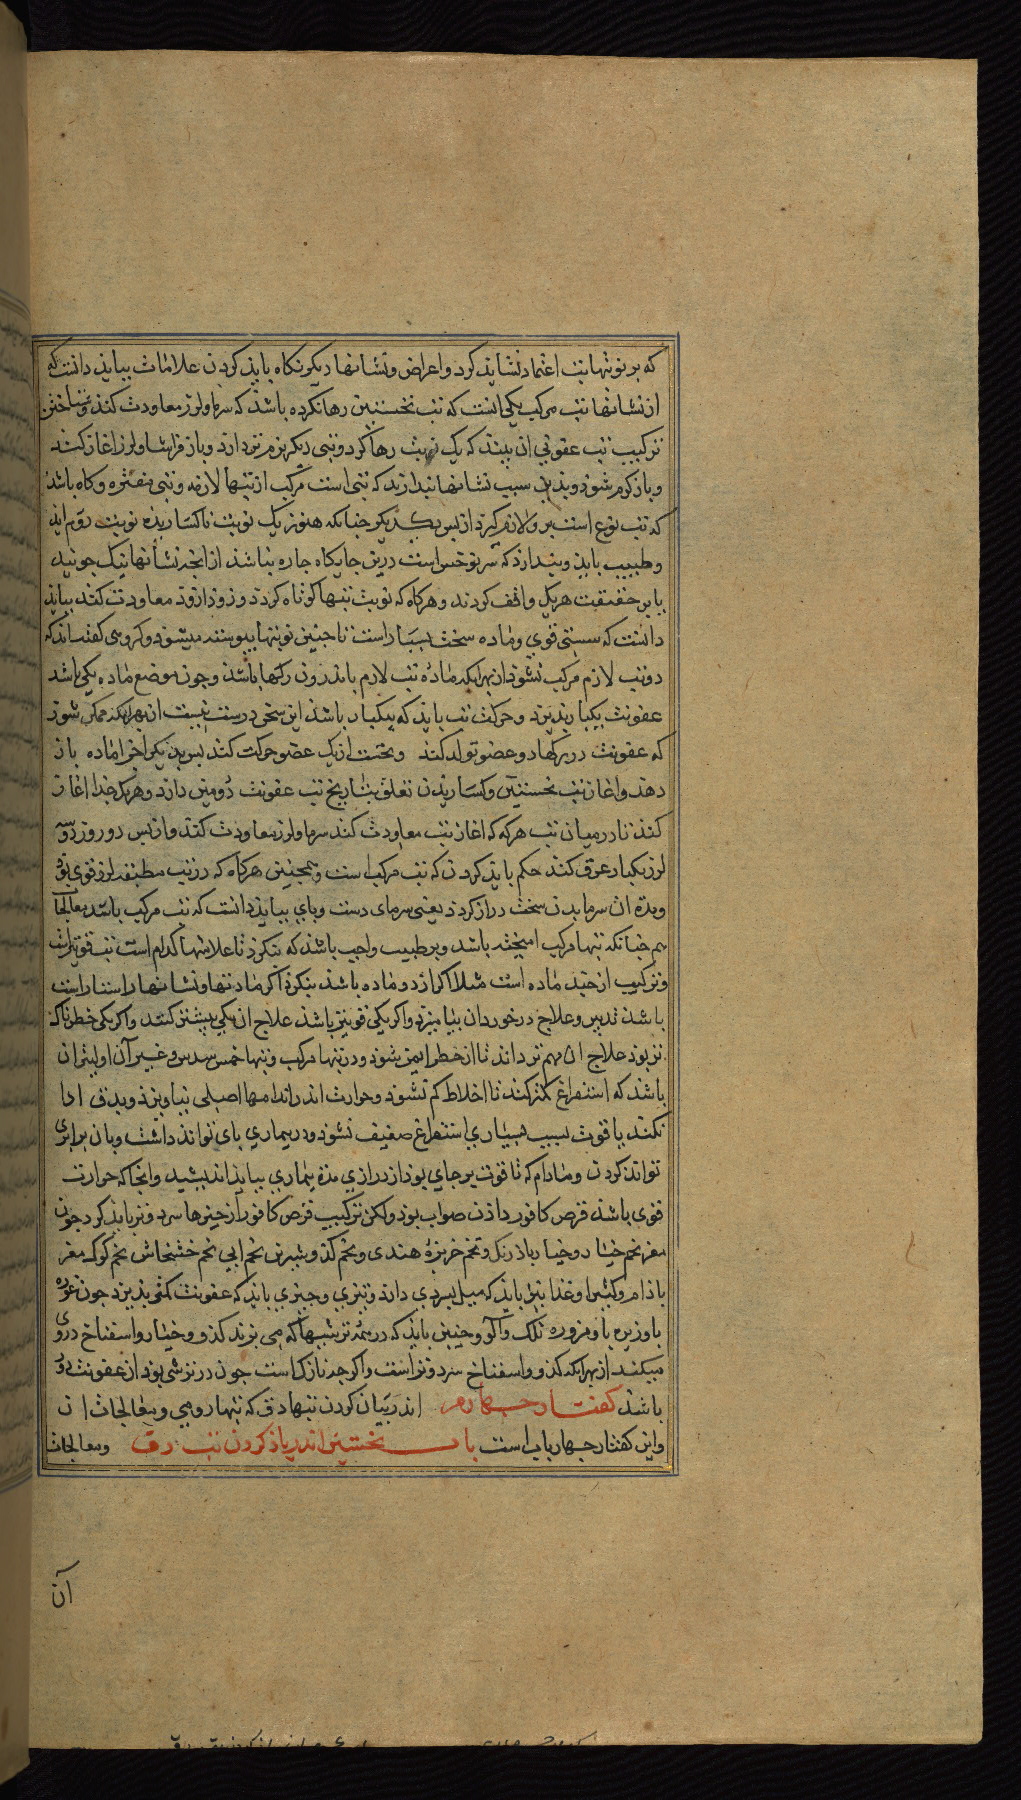 که بر نوبتهاء تب اعتماد نشاید کرد و اعراض و نشانها دیگر نکاه باید کردن علامات بباید دانست که
از نشانها تب مرکب یکی انست که تب نخستین رها نکرده باشد که سرما و لرز معاودت کند و شناختن
ترکیب تب عفونی ان بیند که یک نوبت رها کرد و تبی دیکر نرم نرم درارد و باز فراشا و لرز اغاز کند
و باز کرم شود و بدین سبب نشانها پندارند که تبی است مرکب از تبها لازمه و تبی مفتره و کاه باشد
که تب نوع است بر ولازم کیرد از پس یکدیکر چنانکه هنوز یک نوبت ناکساریده نوبت دوم اید
و طبیب باید و پندارد که سرنوخس است درین جایکاه چاره نباشد از انچه نشانها نیک جوید
یا بر حقیقت هر یک واقف کردند و هرکاه که نوبت تبها کوتاه کردد و زود ازود معاودت کند بباید
دانست که سببی قوی و ماده سخت بسیار است تا چنین نوبتها پیوسته میشود و کروهی کفته اند که
دو تب لازم مرکب نشود از بهر انکه ماده تب لازم باندرون رکها باشد و چون موضع ماده یکی باشد
عفونت یکبار پذیرد و حرکت تب باید که بیکبار باشد این سخن درست نیست از بهر انکه ممکن شود
که عفونت در رکها دو عضو تولد کند و نخست از یک عضو حرکت کند پس بدیکر اخر اماده باز
دهد و اغاز تب نخستین و کساریدن تعلق بتاریخ تب عفونت دومین دارد و هر یک جدا اغاز
کند تا در میان تب هرکه که اغاز تب معاودت کند سرما و لرز معاودت کند و از پس دو روز دو سه
لرز یکبار عرق کند حکم باید کردن که تب مرکب است و همچنین هرکاه که در تب مطبقه لرز قوی بود
و مدة ان سرما بدن سخت دراز کردد یعنی سرمای دست و پای بباید دانست که تب مرکب باشد معالجها
هم چنانکه تبها مرکب امیخته باشد و بر طبیب واجب باشد که بنکرد تا علامتها کدام است تب قویتر است
و ترکیب از چند ماده است مثلا اکر از دو ماده باشد بنکرد اکر مادتها و نشانها راستاراست
باشد تدبیر و علاج در خورد ان بیامیزد و اکر یکی قویتر باشد علاج ان یکی بیشتر کند و اکر یکی خطرناک
تر بود علاج ان مهم تر داند تا از خطر ایمن شود و در تبها مرکب و تبها خمس سدس و غیر آن اولیتر ان
باشد که استفراغ کمتر کند تا اخلاط کم نشود و حرارت اندر اندامها اصلی نیاویزد و بدق ادا
نکند یا قوت بسبب بسیاری استفراغ ضعیف نشود و در بیماری پای تواند داشت و بان برابری
تواند کردن و مادام که تا قوت بر جای بود از درازی مدة بیماری بباید اندیشید و انجا که حرارت
قوی باشد قرص کافور دادن صواب بود ولکن ترکیب قرص کافور از چیزها سرد و تر باید کرد چون
مغز تخم خیار و خیار باذرنک و تخم خربزهٔ هندی و تخم کدو شیرین تخم ابی تخم خشخاش تخم کوک مغز
باذام و کتیرا و غذا نیز باید که میل بسردی دارد و بتری و چیزی باید که عفونت کمتر پذیرد چون غوره
با و زیره با و مزوره نلک و آلو و چنین باید که در همه ترشیها که می پزند کدو و خیار و اسفناخ در وی
میکند از بهر انکه کدو و اسفناخ سرد و تر است و اکر چه نازک است چون در ترشی بود از عفونت دور
باشد کفتار چهارم اندر بیان کردن تبها دق که تبها روحی و معالجات ان
و این کفتار چهار باب است باب نخستین اندر یاذ کردن تب دق و معالجات
آن